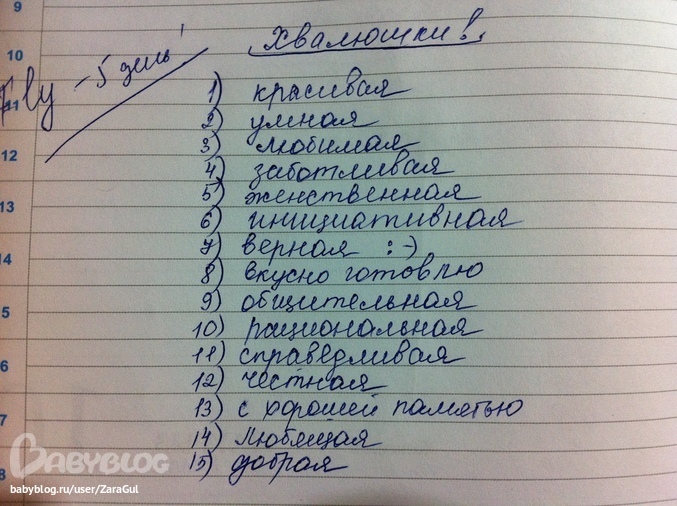 9
10
11
12
13
14
5
6
7
8
Fly - 5 день!
Хвалюшки!
1) красивая
2) умная
3) любимая
4) заботливая
5) женственная
6) инициативная
7) верная :-)
8) вкусно готовлю
9) общительная
10) рациональная
11) справедливая
12) честная
13) с хорошей памятью
14) любящая
15) добрая
BABYBLOG
babyblog.ru/user/ZaraGul